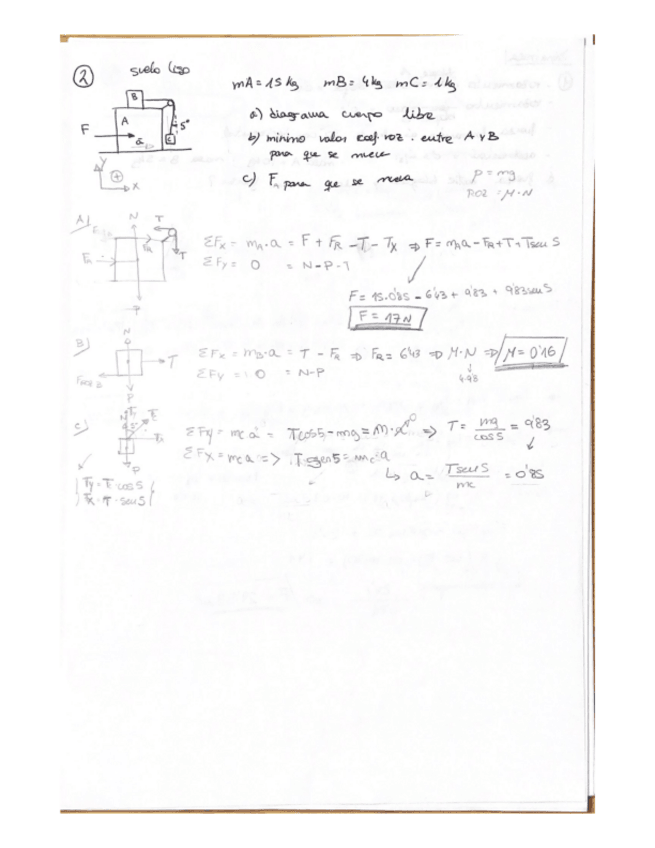 ② suelo liso
mA = 15 kg mB = 4 kg mC = 1 kg
B
A
F
a
5°
C
a) diagrama cuerpo libre
b) mínimo valor coef. roz. entre A y B
para que se mueva
c) F para que se mueva
P = mg
ROZ = M·N
Y
X
A)
N
T
T
P
ΣFx = mA·a = F + FR - T - Tx ⇒ F = mA a - FR + T + T sen 5
ΣFy = 0 = N - P - T
F = 15·0'85 - 6'43 + 9'83 + 9'83 sen 5
F = 17 N
B)
N
T
P
ΣFx = mB·a = T - FR ⇒ FR = 6'43 ⇒ M·N ⇒ M = 0'16
4·9.8
ΣFy = 0 = N - P
C)
P
ΣFy = mC a = T cos 5 - mg = m·a 0 ⇒ T = mg / cos 5 = 9'83
ΣFx = mC a => T sen 5 = mC·a
a = T sen 5 / mC = 0'85
Ty = T · cos 5
Tx = T · sen 5